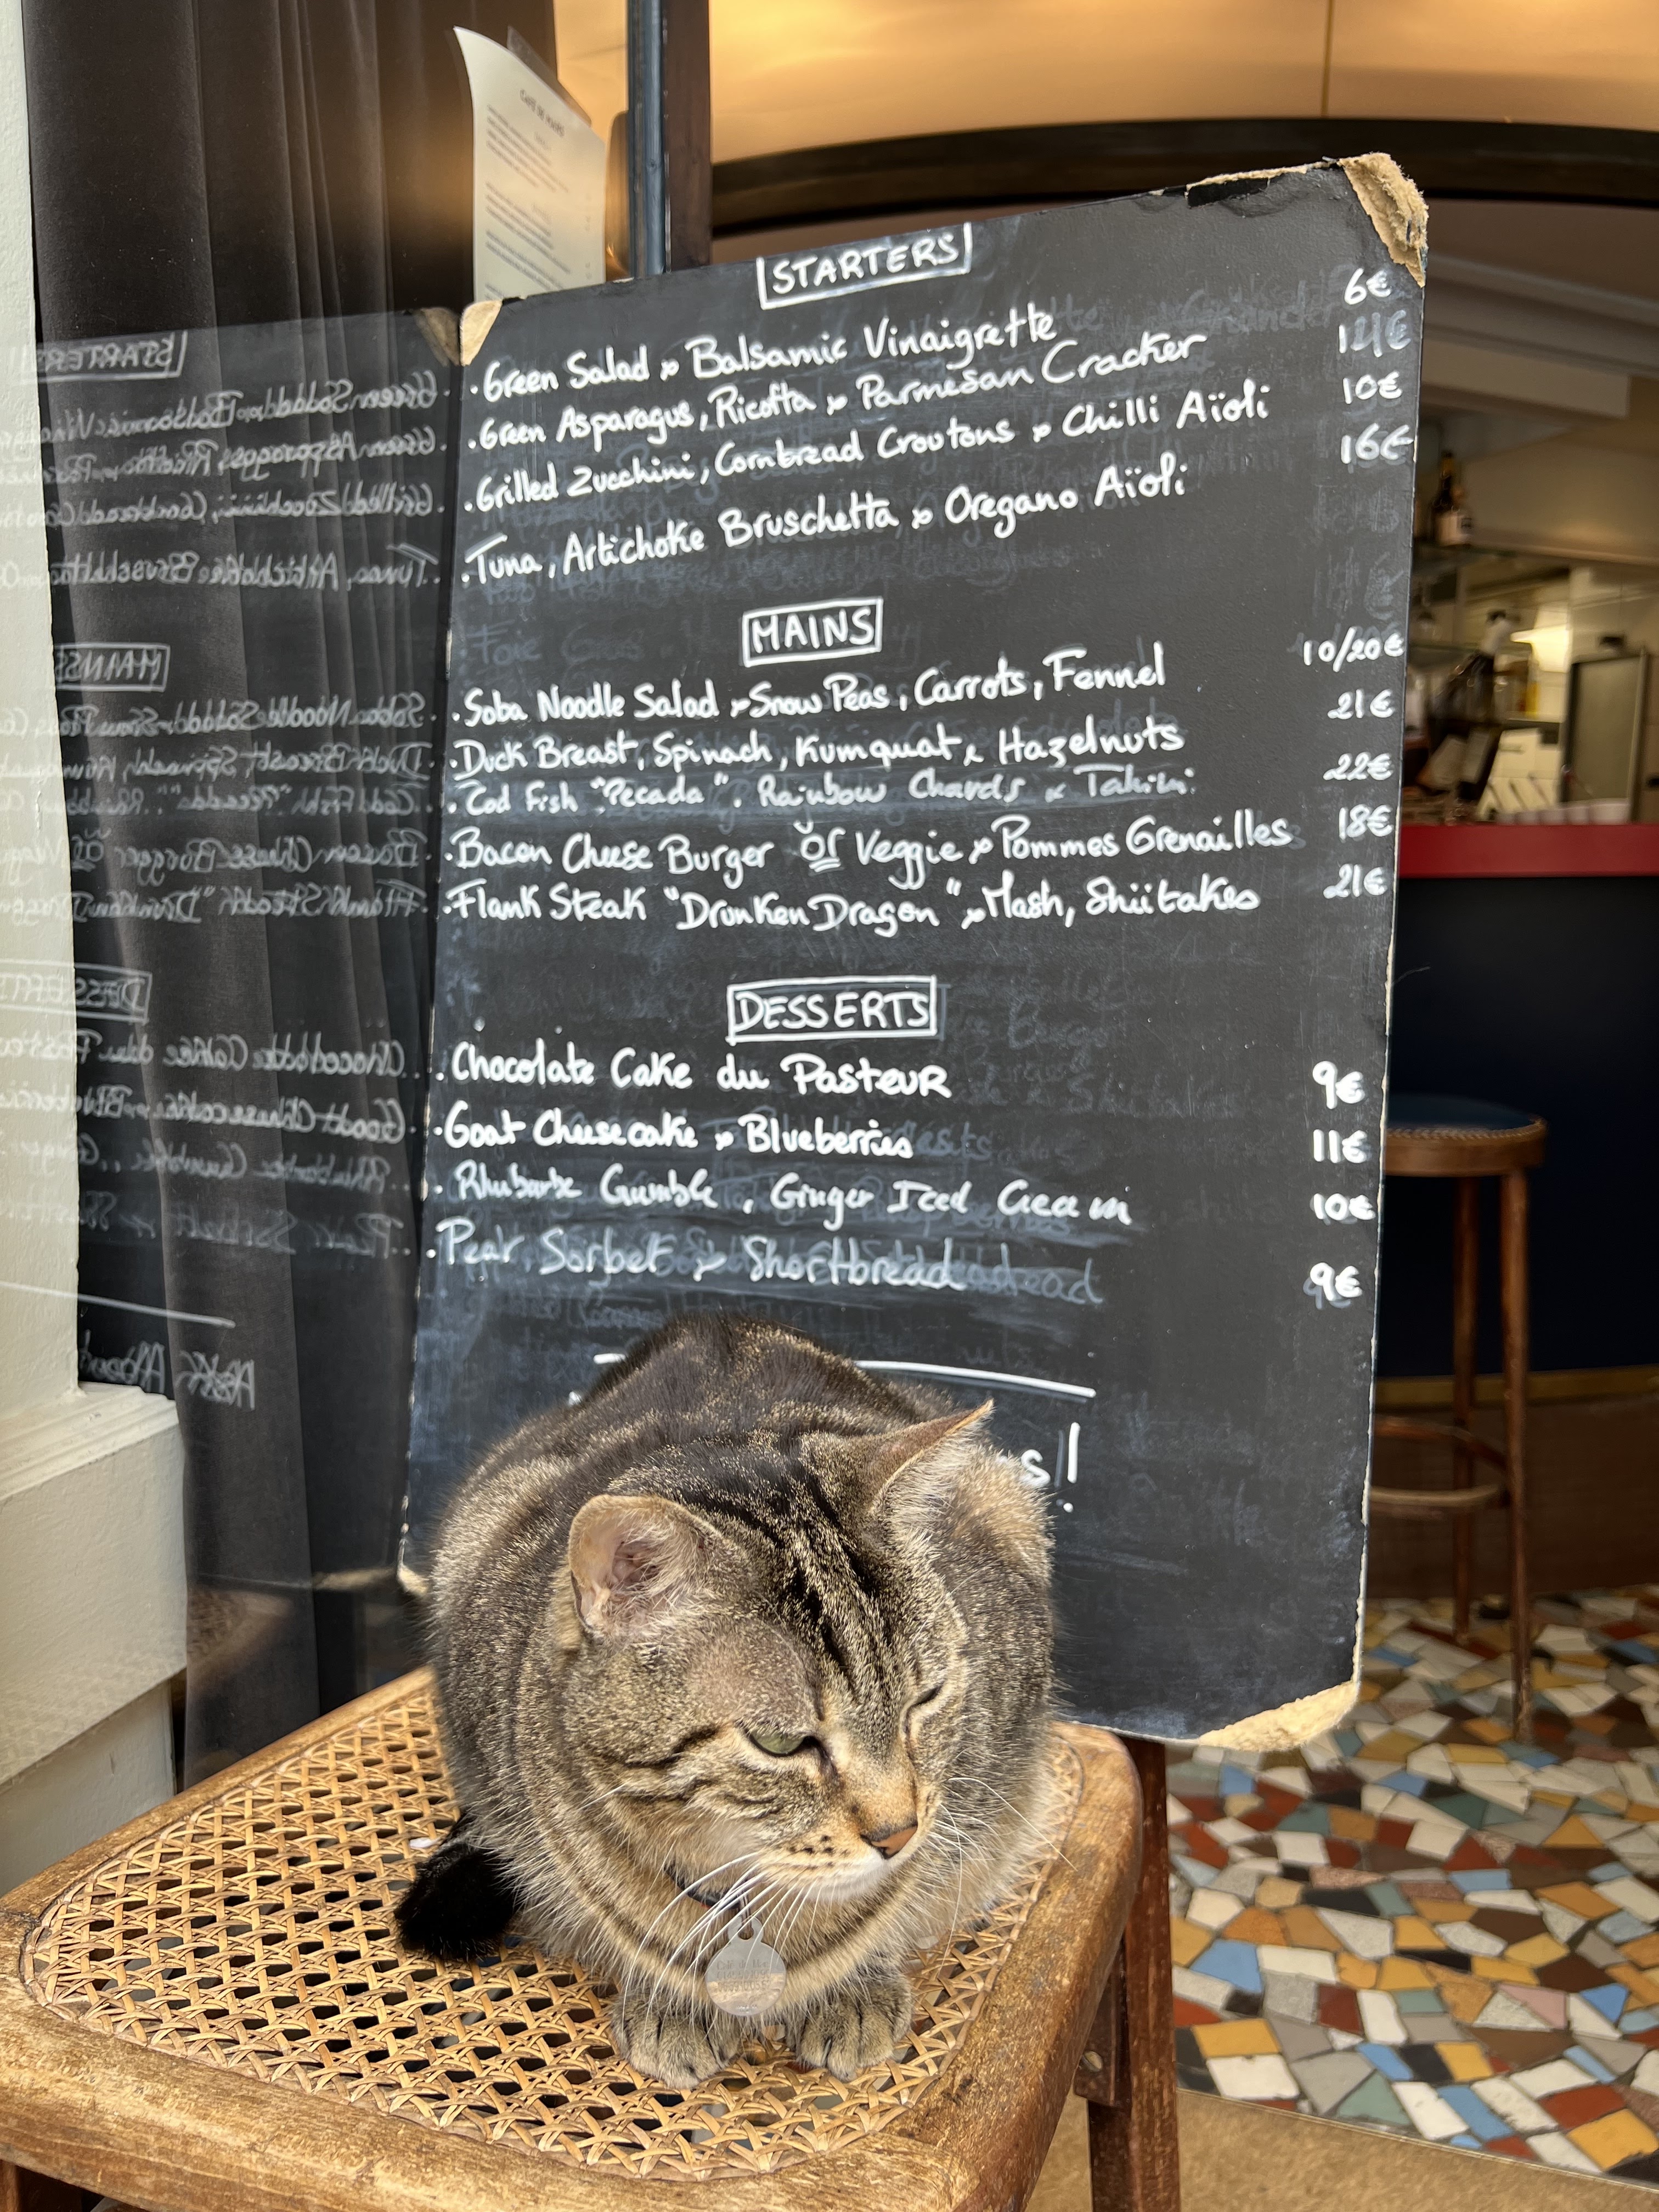 STARTERS
· Green Salad & Balsamic Vinaigrette 6€
· Green Asparagus, Ricotta & Parmesan Cracker 14€
· Grilled Zucchini, Cornbread Croutons & Chilli Aïoli 10€
· Tuna, Artichoke Bruschetta & Oregano Aïoli 16€
MAINS
· Soba Noodle Salad & Snow Peas, Carrots, Fennel 10/20€
· Duck Breast, Spinach, Kumquat & Hazelnuts 21€
· Cod Fish "Pecada", Rainbow Chards & Tahini 22€
· Bacon Cheese Burger or Veggie & Pommes Grenailles 18€
· Flank Steak "Drunken Dragon" & Mash, Shiitakes 21€
DESSERTS
· Chocolate Cake du Pasteur 9€
· Goat Cheesecake & Blueberries 11€
· Rhubarbe Crumble, Ginger Iced Cream 10€
· Pear Sorbet & Shortbread 9€